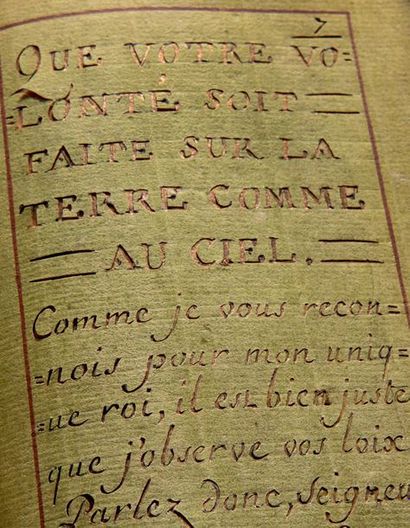 7
QUE VOTRE VO=
=LONTÉ SOIT
FAITE SUR LA
TERRE COMME
AU CIEL.
Comme je vous recon=
=nois pour mon uniq=
=ue roi, il est bien juste
que j'observe vos loix
Parlez donc, Seigneu